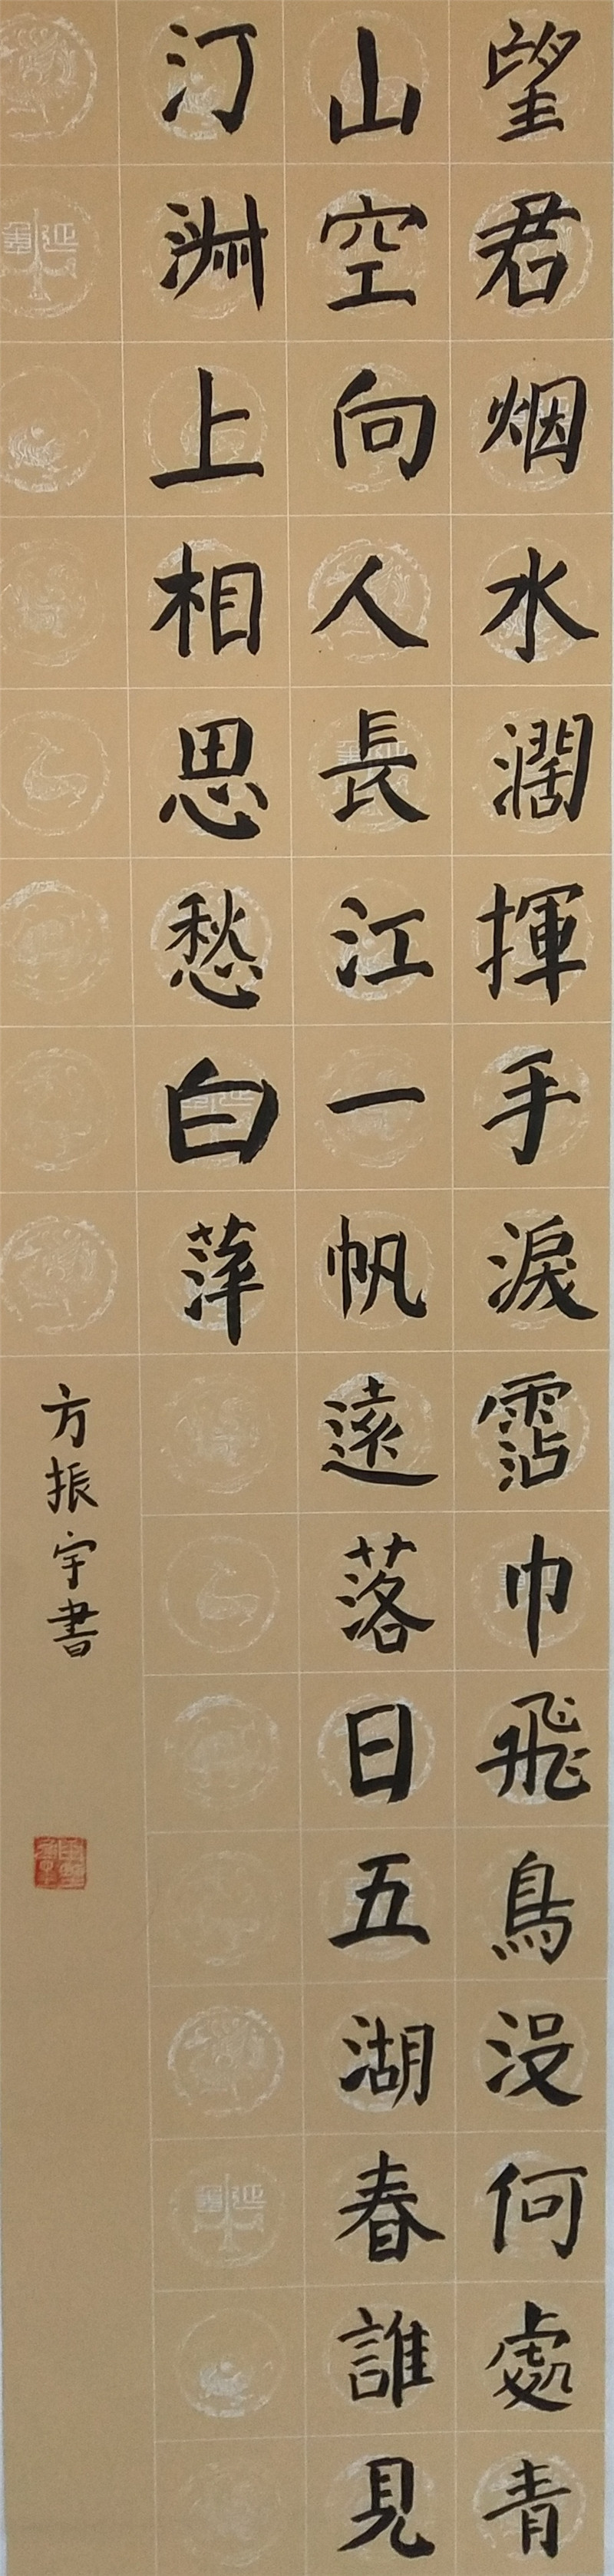 望君烟水濶揮手淚霑巾飛鳥没何處青
山空向人長江一帆遠落日五湖春誰見
汀洲上相思愁白萍
方振宇書